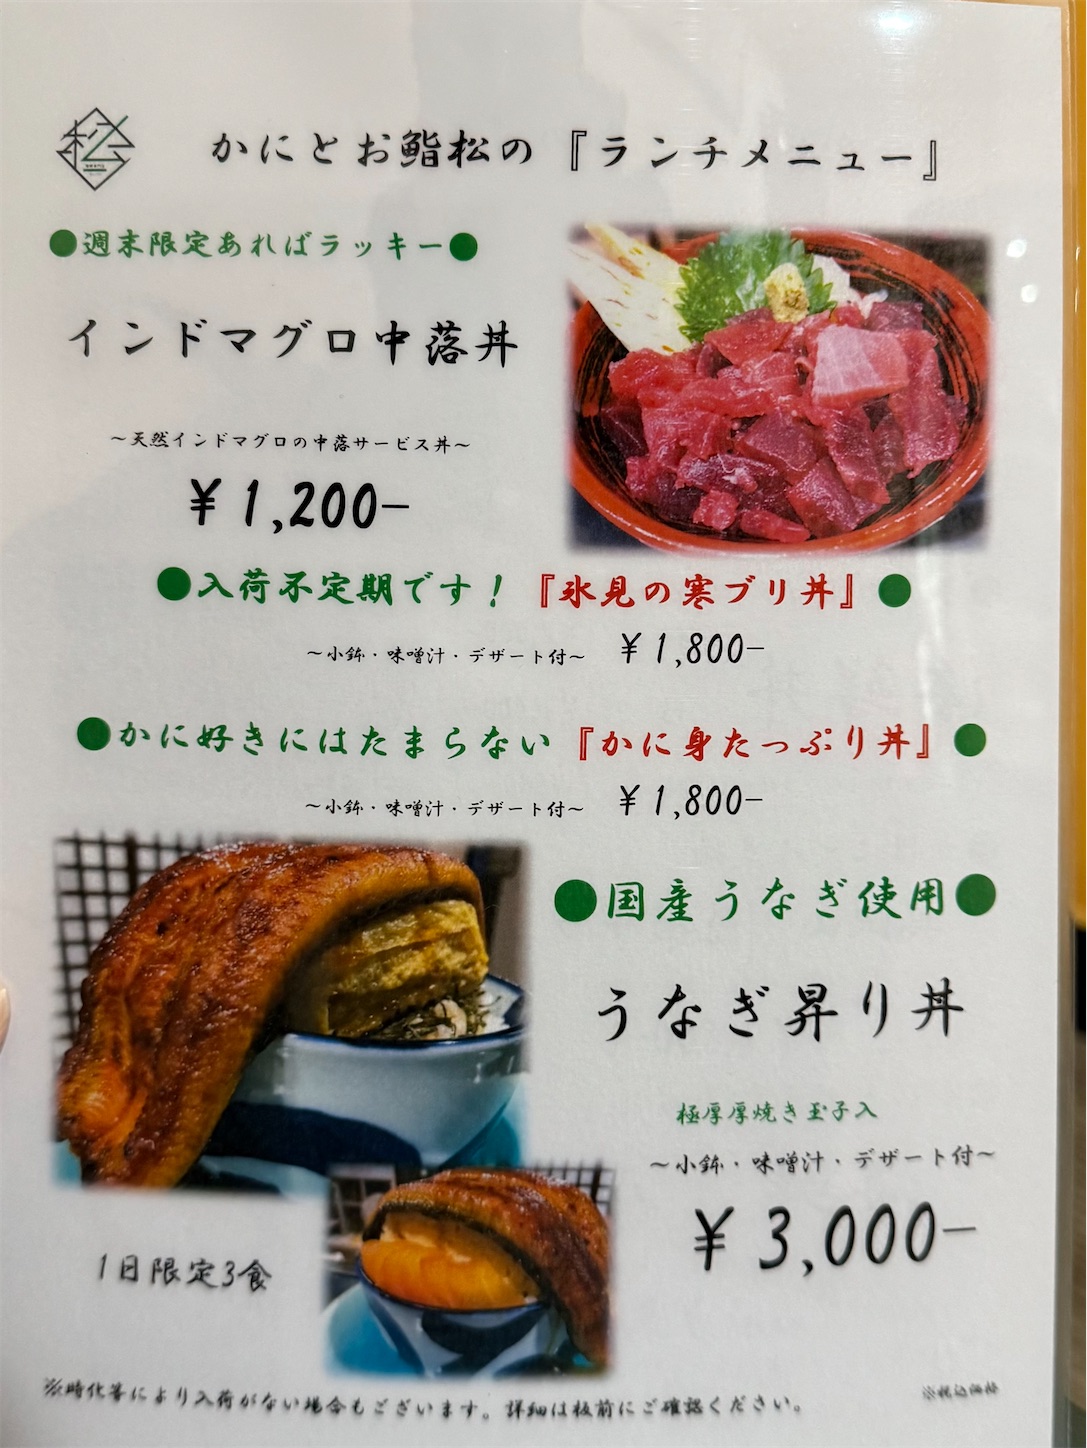 松
かにとお鮨松の『ランチメニュー』
●週末限定あればラッキー●
インドマグロ中落丼
～天然インドマグロの中落サービス丼～
¥1,200-
●入荷不定期です！『氷見の寒ブリ丼』●
～小鉢・味噌汁・デザート付～ ¥1,800-
●かに好きにはたまらない『かに身たっぷり丼』●
～小鉢・味噌汁・デザート付～ ¥1,800-
●国産うなぎ使用●
うなぎ昇り丼
極厚厚焼き玉子入
～小鉢・味噌汁・デザート付～
¥3,000-
1日限定3食
※時化等により入荷がない場合もございます。詳細は板前にご確認ください。
※税込価格